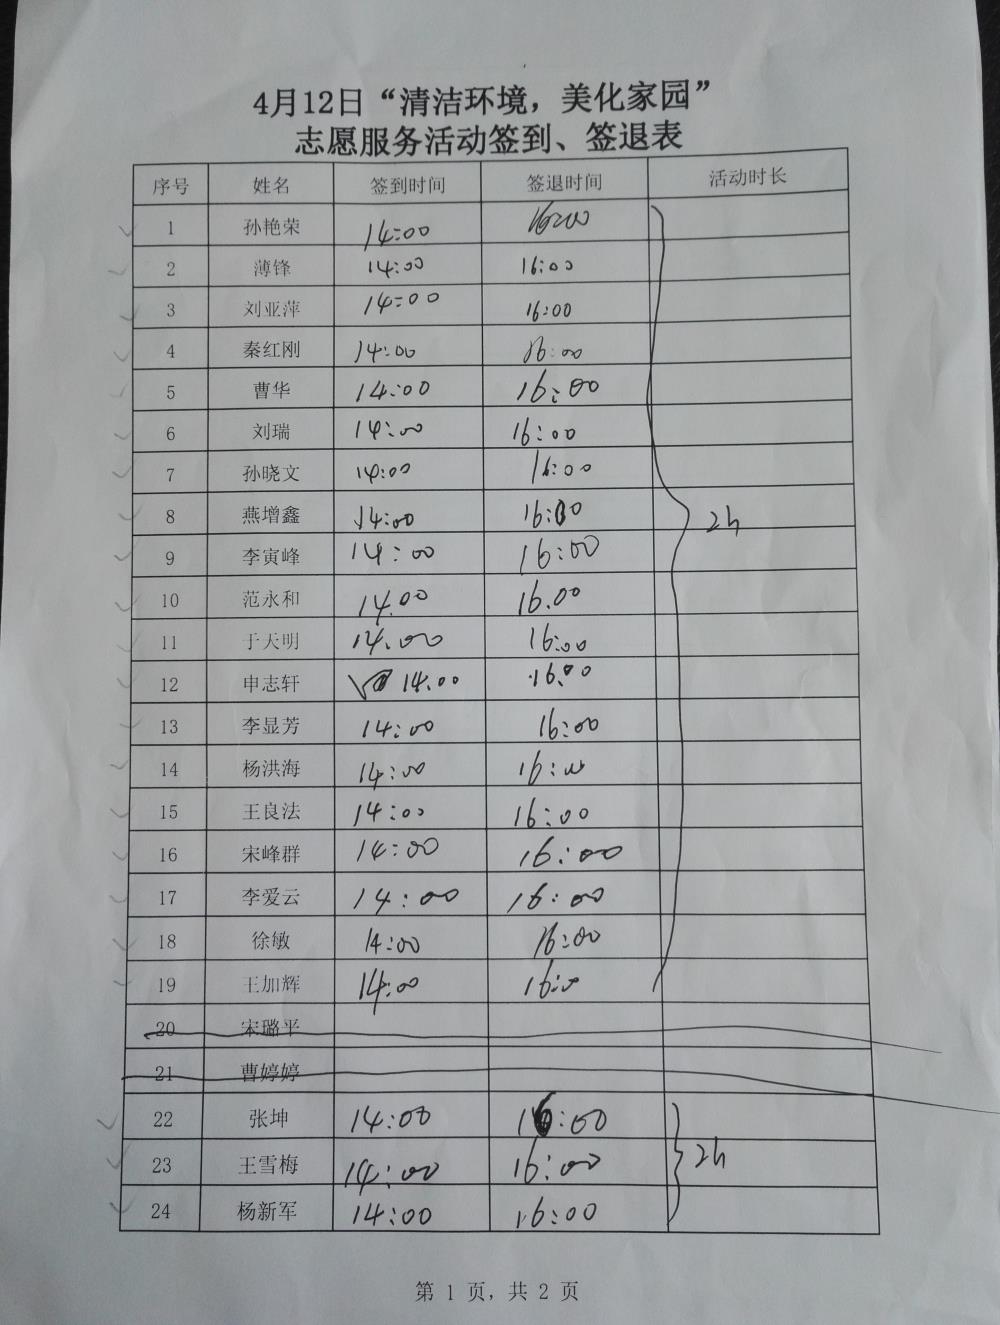 4月12日“清洁环境，美化家园”
志愿服务活动签到、签退表
序号 姓名 签到时间 签退时间 活动时长
1 孙艳荣 14:00 16:00
2 薄锋 14:00 16:00
3 刘亚萍 14:00 16:00
4 秦红刚 14:00 16:00
5 曹华 14:00 16:00
6 刘瑞 14:00 16:00
7 孙晓文 14:00 16:00
8 燕增鑫 14:00 16:00 2h
9 李寅峰 14:00 16:00
10 范永和 14.00 16.00
11 于天明 14.00 16:00
12 申志轩 14.00 16:00
13 李显芳 14:00 16:00
14 杨洪海 14:00 16:00
15 王良法 14:00 16:00
16 宋峰群 14:00 16:00
17 李爱云 14:00 16:00
18 徐敏 14:00 16:00
19 王加辉 14:00 16:00
20 宋璐平
21 曹婷婷
22 张坤 14:00 16:00
23 王雪梅 14:00 16:00 2h
24 杨新军 14:00 16:00
第 1 页，共 2 页